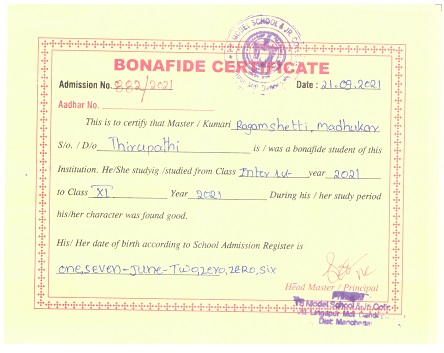 TS MODEL SCHOOL & JR. COL
BONAFIDE CERTIFICATE
Admission No. 882/2021 Date : 21.09.2021
Aadhar No.
This is to certify that Master / Kumari Ragamshetti, Madhukar
S/o. / D/o Thirupathi is / was a bonafide student of this
Institution. He/She studyig /studied from Class Inter 1st year 2021
to Class XI Year 2021 During his / her study period
his/her character was found good.
His/ Her date of birth according to School Admission Register is
one,seven-June-Two,zero,zero,six
Head Master / Principal
Principal
TS Model School & Jr. Col
Lingapur Mdl
Dist